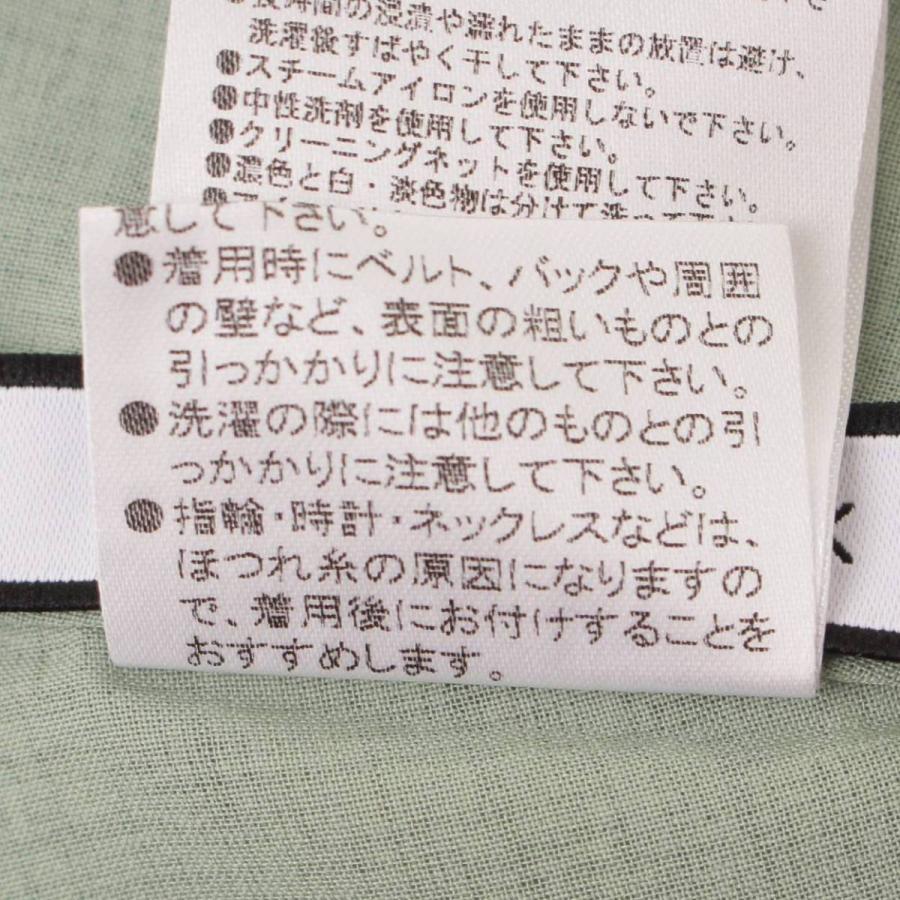 ●長時間の浸漬や濡れたままの放置は避け、
洗濯後すばやく干して下さい。
●スチームアイロンを使用しないで下さい。
●中性洗剤を使用して下さい。
●クリーニングネットを使用して下さい。
●濃色と白・淡色物は分けて洗って下さい
意して下さい。
●着用時にベルト、バックや周囲
の壁など、表面の粗いものとの
引っかかりに注意して下さい。
●洗濯の際には他のものとの引
っかかりに注意して下さい。
●指輪・時計・ネックレスなどは、
ほつれ糸の原因になりますの
で、着用後にお付けすることを
おすすめします。